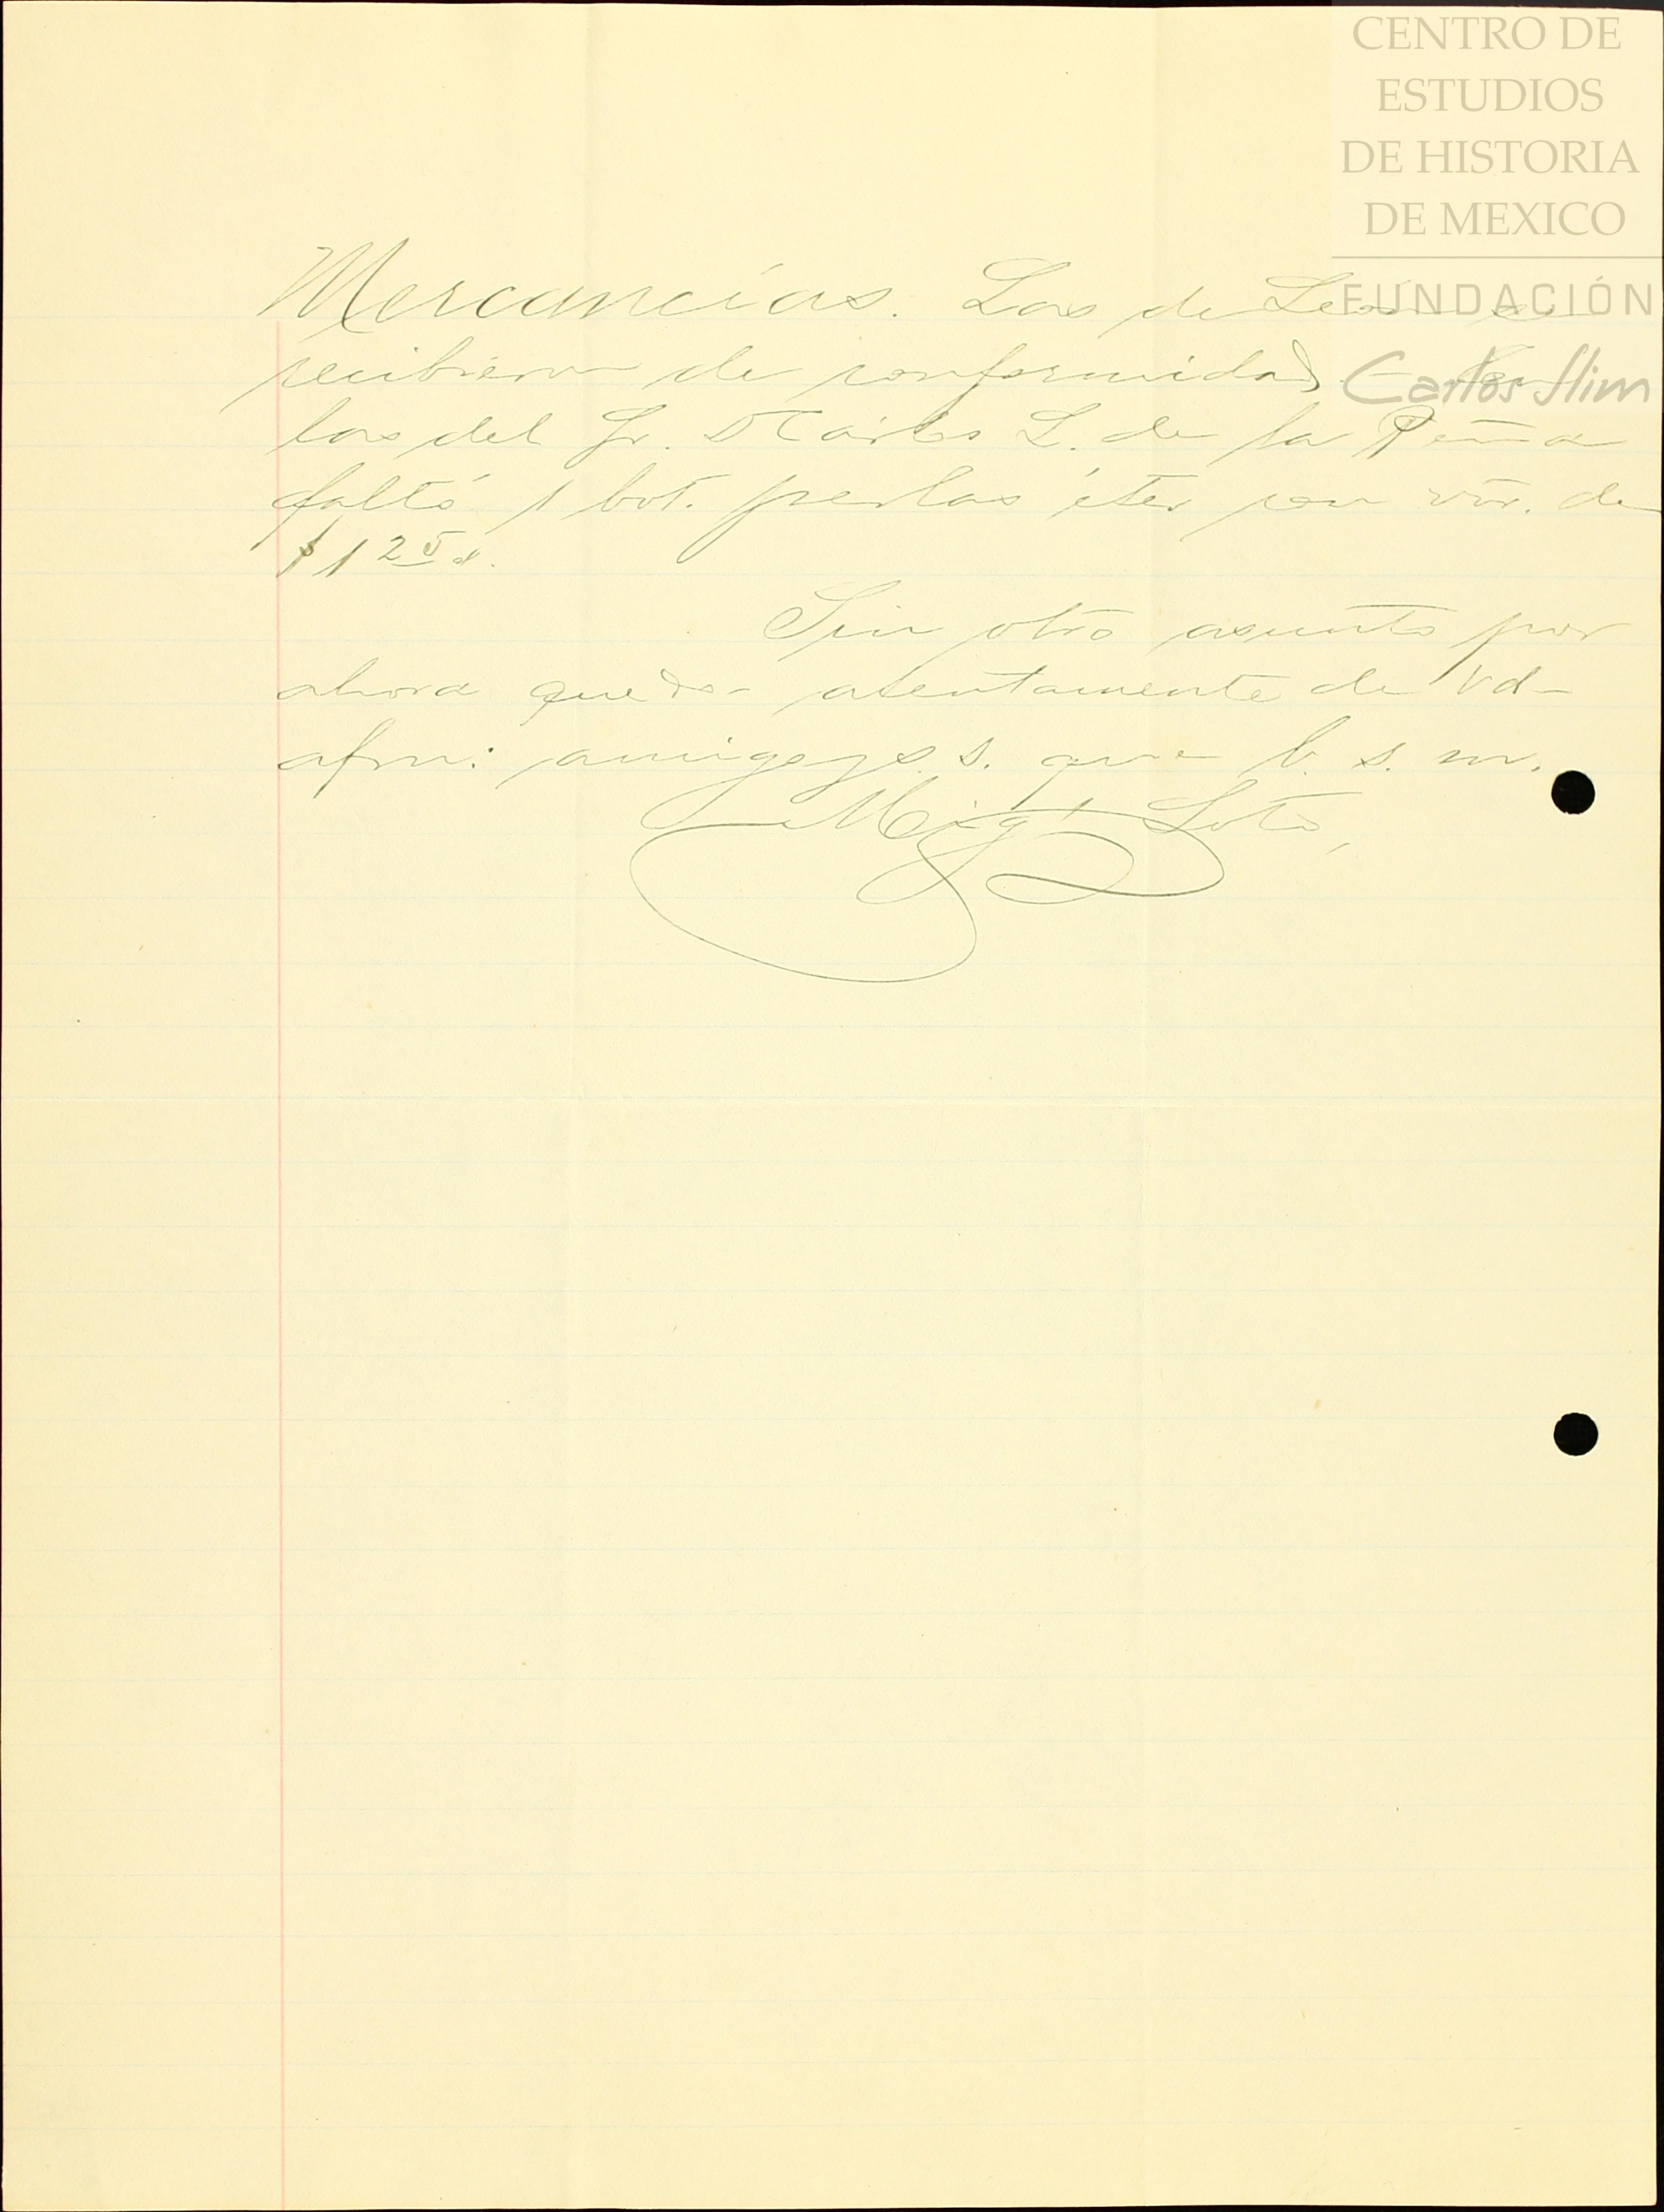 CENTRO DE
ESTUDIOS
DE HISTORIA
DE MEXICO
FUNDACIÓN
Carlos Slim
Mercancías. Las de León se
recibieron de conformidad. En
las del Sr. D Cárlos L. de la Peña
faltó 1 bot. perlas éter con vór. de
$ 1 25
Sin otro asunto por
ahora quedo atentamente de Vd
afmo: amigo y s. s. que b. s. m.
Migl Soto,